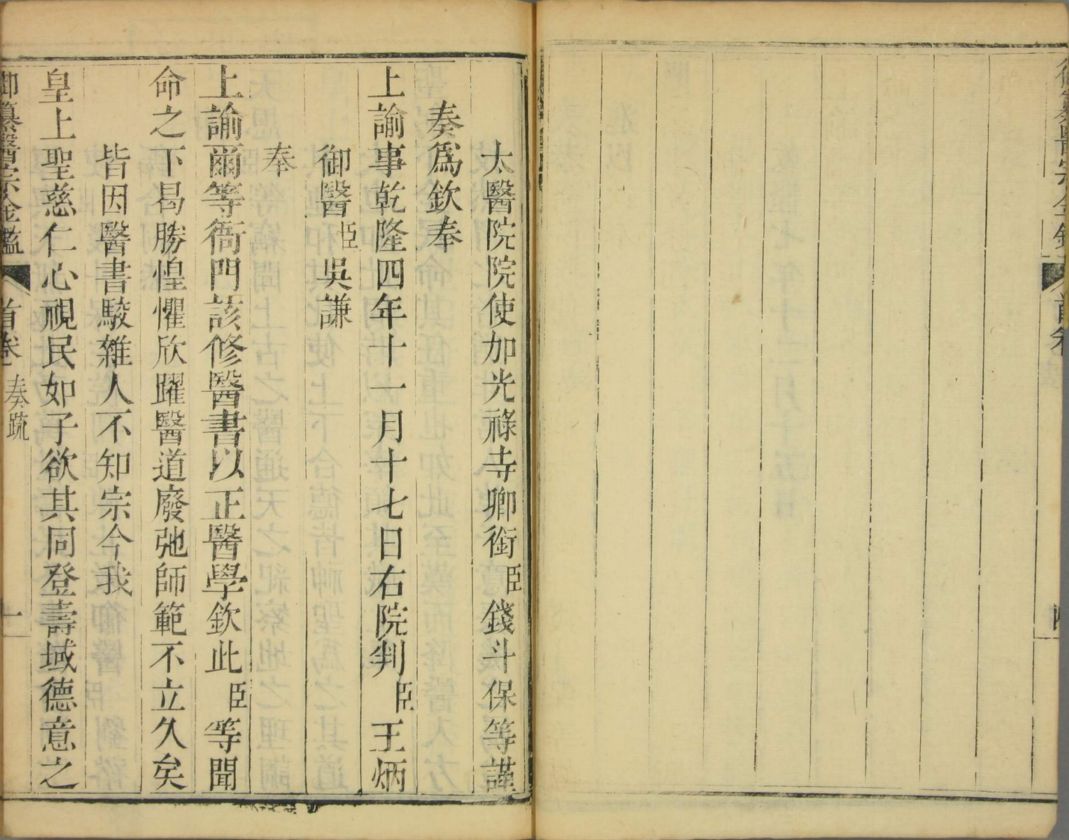 太醫院院使加光祿寺卿銜臣錢斗保等謹
奏爲欽奉
上諭事乾隆四年十一月十七日右院判臣王炳
御醫臣吳謙
奉
上諭爾等衙門該修醫書以正醫學欽此臣等聞
命之下曷勝惶懼欣躍醫道廢弛師範不立久矣
皆因醫書駁雜人不知宗今我
皇上聖慈仁心視民如子欲其同登壽域德意之
御纂醫宗金鑑 首卷 奏疏 一